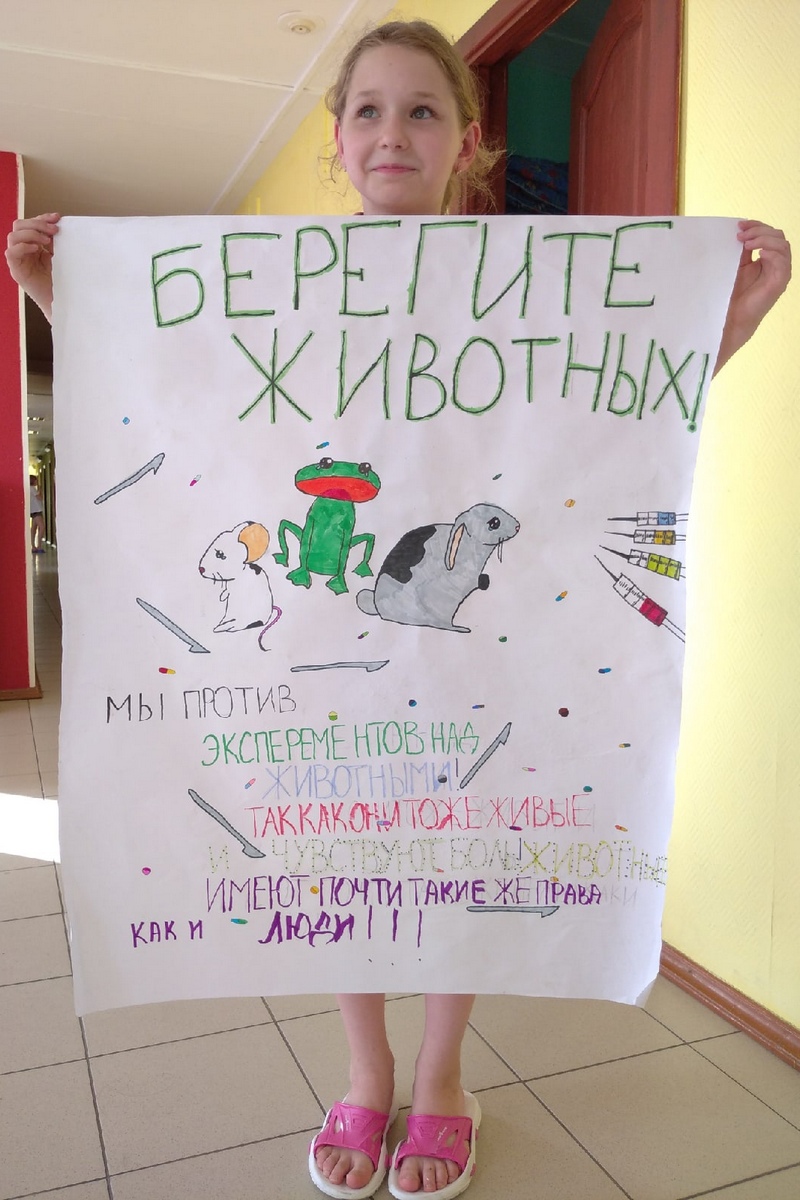 БЕРЕГИТЕ
ЖИВОТНЫХ!
МЫ ПРОТИВ
ЭКСПЕРЕМЕНТОВ НАД
ЖИВОТНЫМИ!
ТАК КАК ОНИ ТОЖЕ ЖИВЫЕ
И ЧУВСТВУЮТ БОЛЬ! ЖИВОТНЫЕ
ИМЕЮТ ПОЧТИ ТАКИЕ ЖЕ ПРАВА
КАК И ЛЮДИ!!!